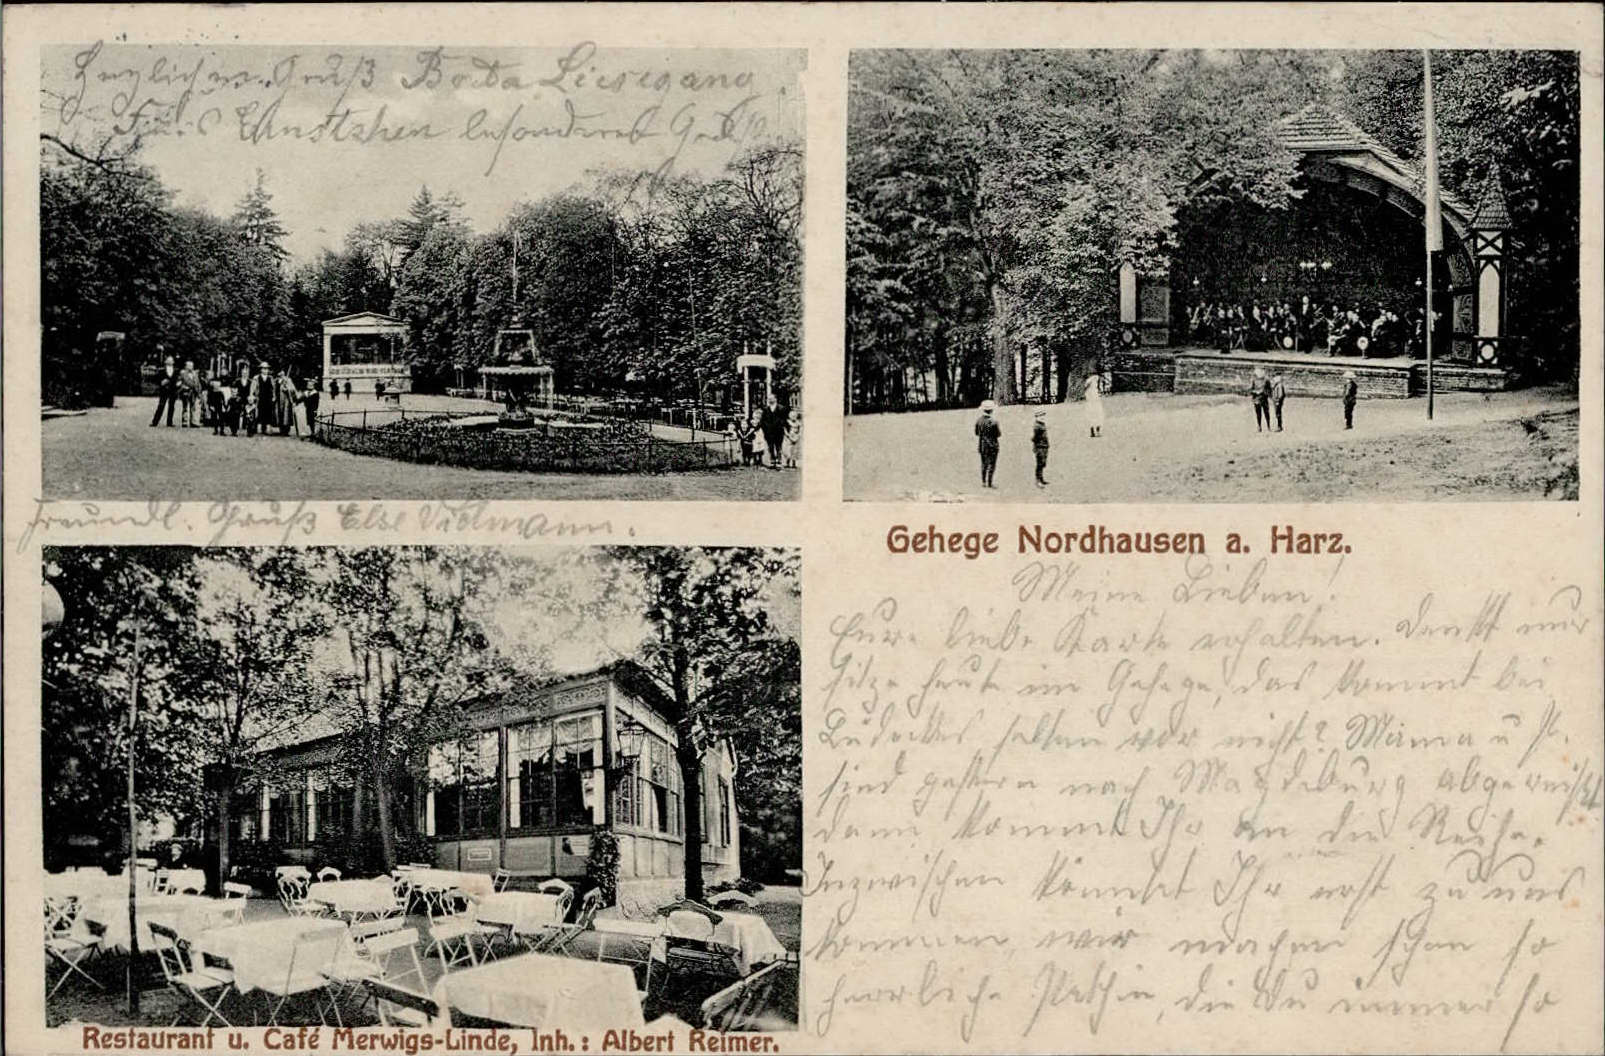 Herzlichen Gruß Berta Liesegang
Fürs Ernstchen besonderen Gruß
Freundl. Gruß Else
Gehege Nordhausen a. Harz.
Meine Lieben!
Eure liebe Karte erhalten. Denkt nur
sitze heute im Gehege, das kommt bei
selten vor nicht? Mama u
sind gestern nach Magdeburg abgereist
dann kommt Ihr an die Reihe.
Inzwischen könntet Ihr erst zu uns
kommen, wir machen schon so
herrliche die Du immer so
Restaurant u. Café Merwigs-Linde, Inh.: Albert Reimer.